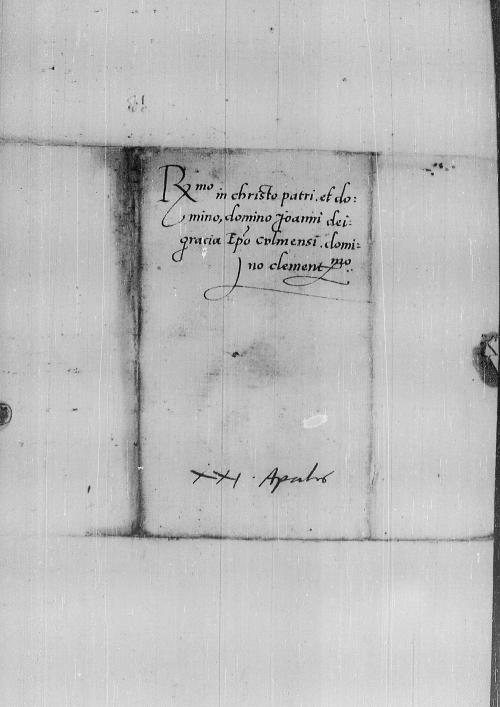 Rmo in christo patri. et do:
mino, domino Joanni dei:
gracia Epo Culmensi. domi:
no clementmo.
XXI. Aprilis